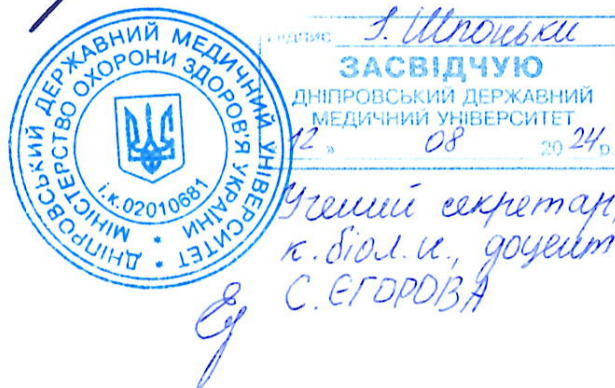 ДНІПРОВСЬКИЙ ДЕРЖАВНИЙ МЕДИЧНИЙ УНІВЕРСИТЕТ *
МІНІСТЕРСТВО ОХОРОНИ ЗДОРОВ'Я УКРАЇНИ *
і.к.02010681
ПІДПИС І. Шпоньки
ЗАСВІДЧУЮ
ДНІПРОВСЬКИЙ ДЕРЖАВНИЙ
МЕДИЧНИЙ УНІВЕРСИТЕТ
12 » 08 20 24 р.
Учений секретар,
к. біол. н., доцент
С. ЄГОРОВА